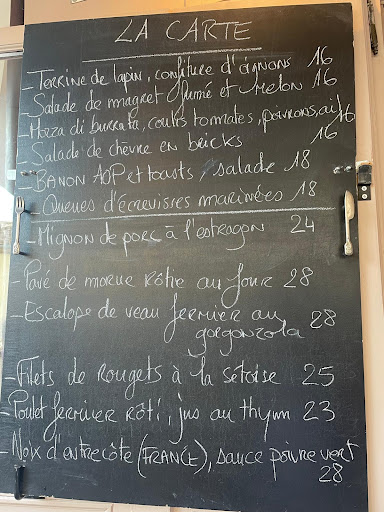 LA CARTE
- Terrine de lapin, confiture d'oignons 16
- Salade de magret fumé et Melon 16
- Mozza di burrata, coulis tomates, poivrons, ail 16
- Salade de chèvre en bricks 16
- BANON AOP et toasts salade 18
- Queues d'écrevisses marinées 18
- Mignon de porc à l'estragon 24
- Pavé de morue rôtie au four 28
- Escalope de veau fermier au
gorgonzola 28
- Filets de Rougets à la sétoise 25
- Poulet fermier rôti, jus au thym 23
- Noix d'entrecôte (FRANCE), sauce poivre vert
28